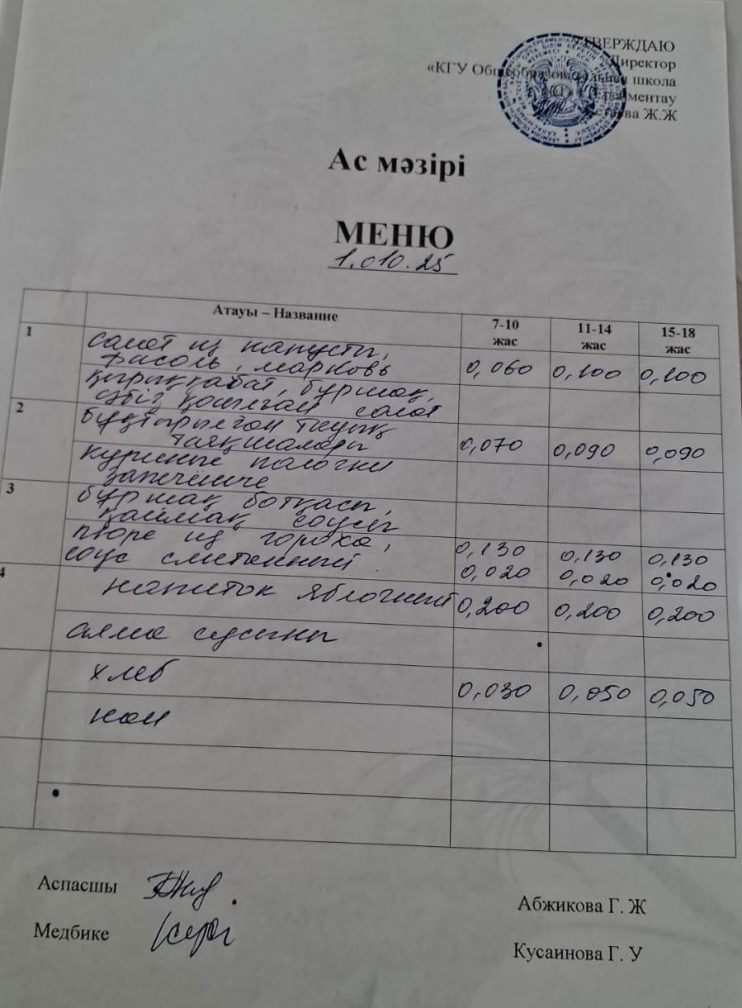 ТВЕРЖДАЮ
Директор
«КГУ Общеобразовательная школа
ментау
ва Ж.Ж
Ас мәзірі
МЕНЮ
1.010.25
Атауы – Название 7-10 жас 11-14 жас 15-18 жас
1 салат из капусты,
фасоль, марковь 0,060 0,100 0,100
қырыққабат, бұршақ,
сәбіз қосылған салат
2 бұқтырылған тауық
таяқшалары 0,070 0,090 0,090
куриные палочки
запечение
3 бұршақ ботқасы,
қаймақ соусы
пюре из гороха, 0,130 0,130 0,130
соус сметанный 0,020 0,020 0,020
4 напиток яблочный 0,200 0,200 0,200
алма сусыны
хлеб 0,030 0,050 0,050
нан
Аспасшы Абжикова Г. Ж
Медбике Кусаинова Г. У